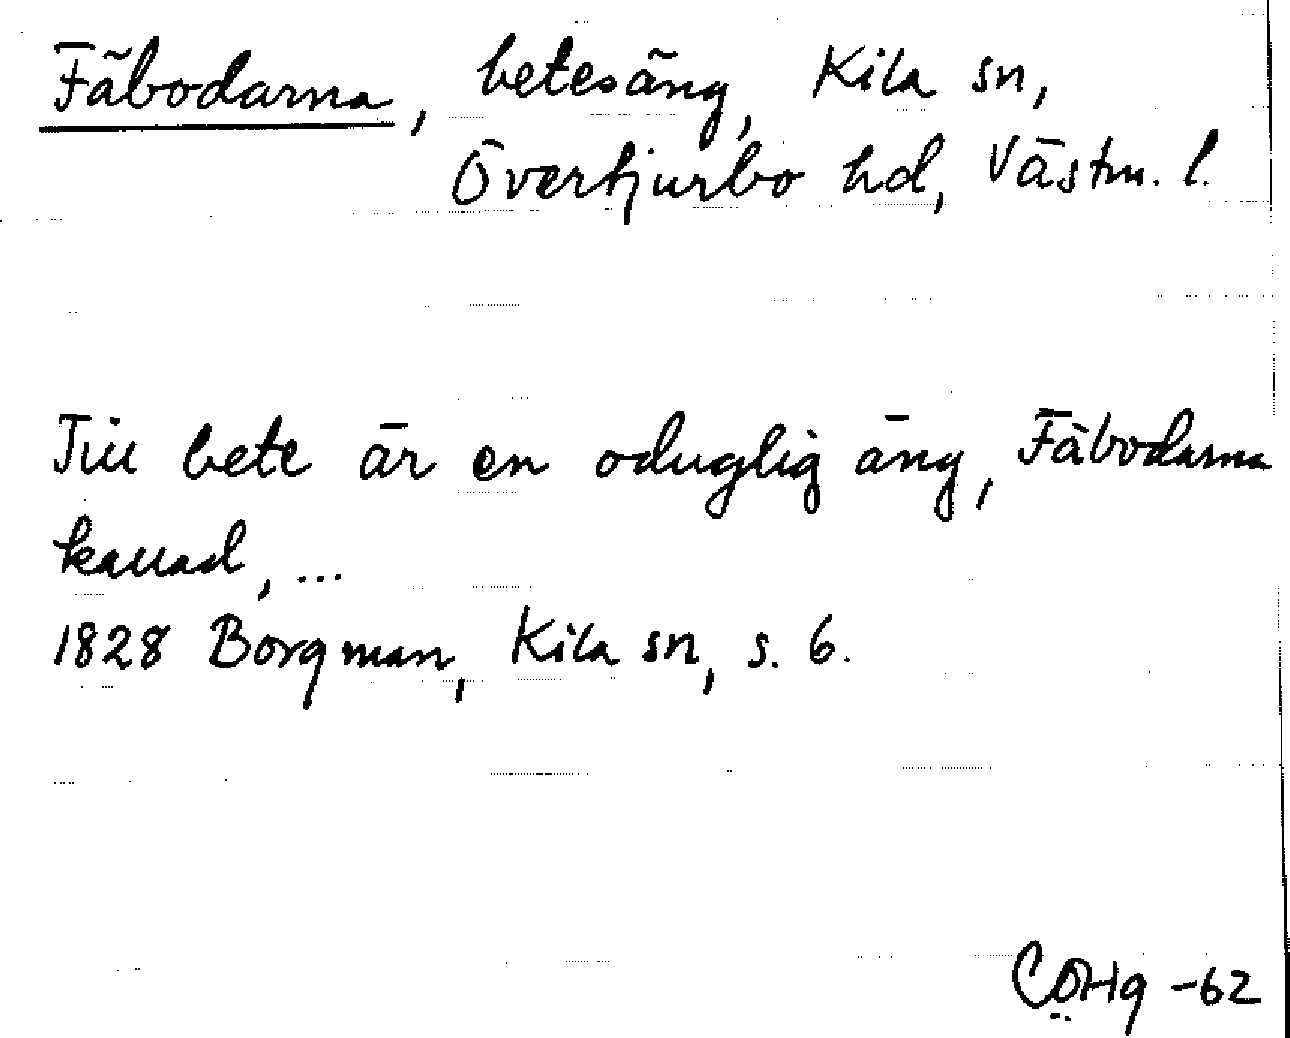 Fäbodarna, betesäng, Kila sn,
Övertjurbo hd, Västm. l.
Till bete är en oduglig äng, Fäbodarna
kallad, ...
1828 Borgman, Kila sn, s. 6.
CÖHg -62